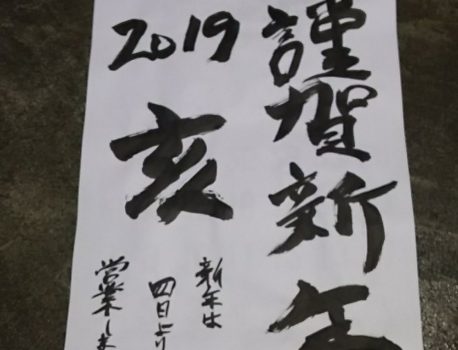 謹賀新年
2019
亥
新年は
四日より
営業しま